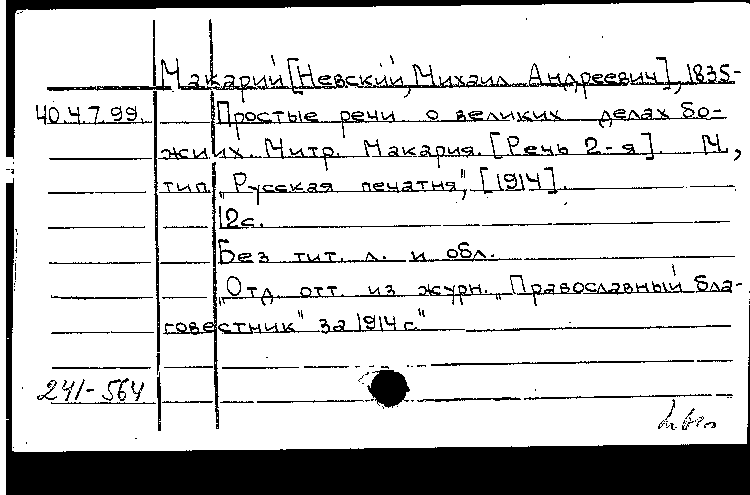 Макарий [Невский, Михаил Андреевич], 1835-
40.4.7.99. Простые речи о великих делах бо-
жиих. Митр. Макария. [Речь 2-я]. М.,
тип. „Русская печатня", [1914].
12с.
Без тит. л. и обл.
„Отд. отт. из журн. „Православный бла-
говестник" за 1914 г."
241-564